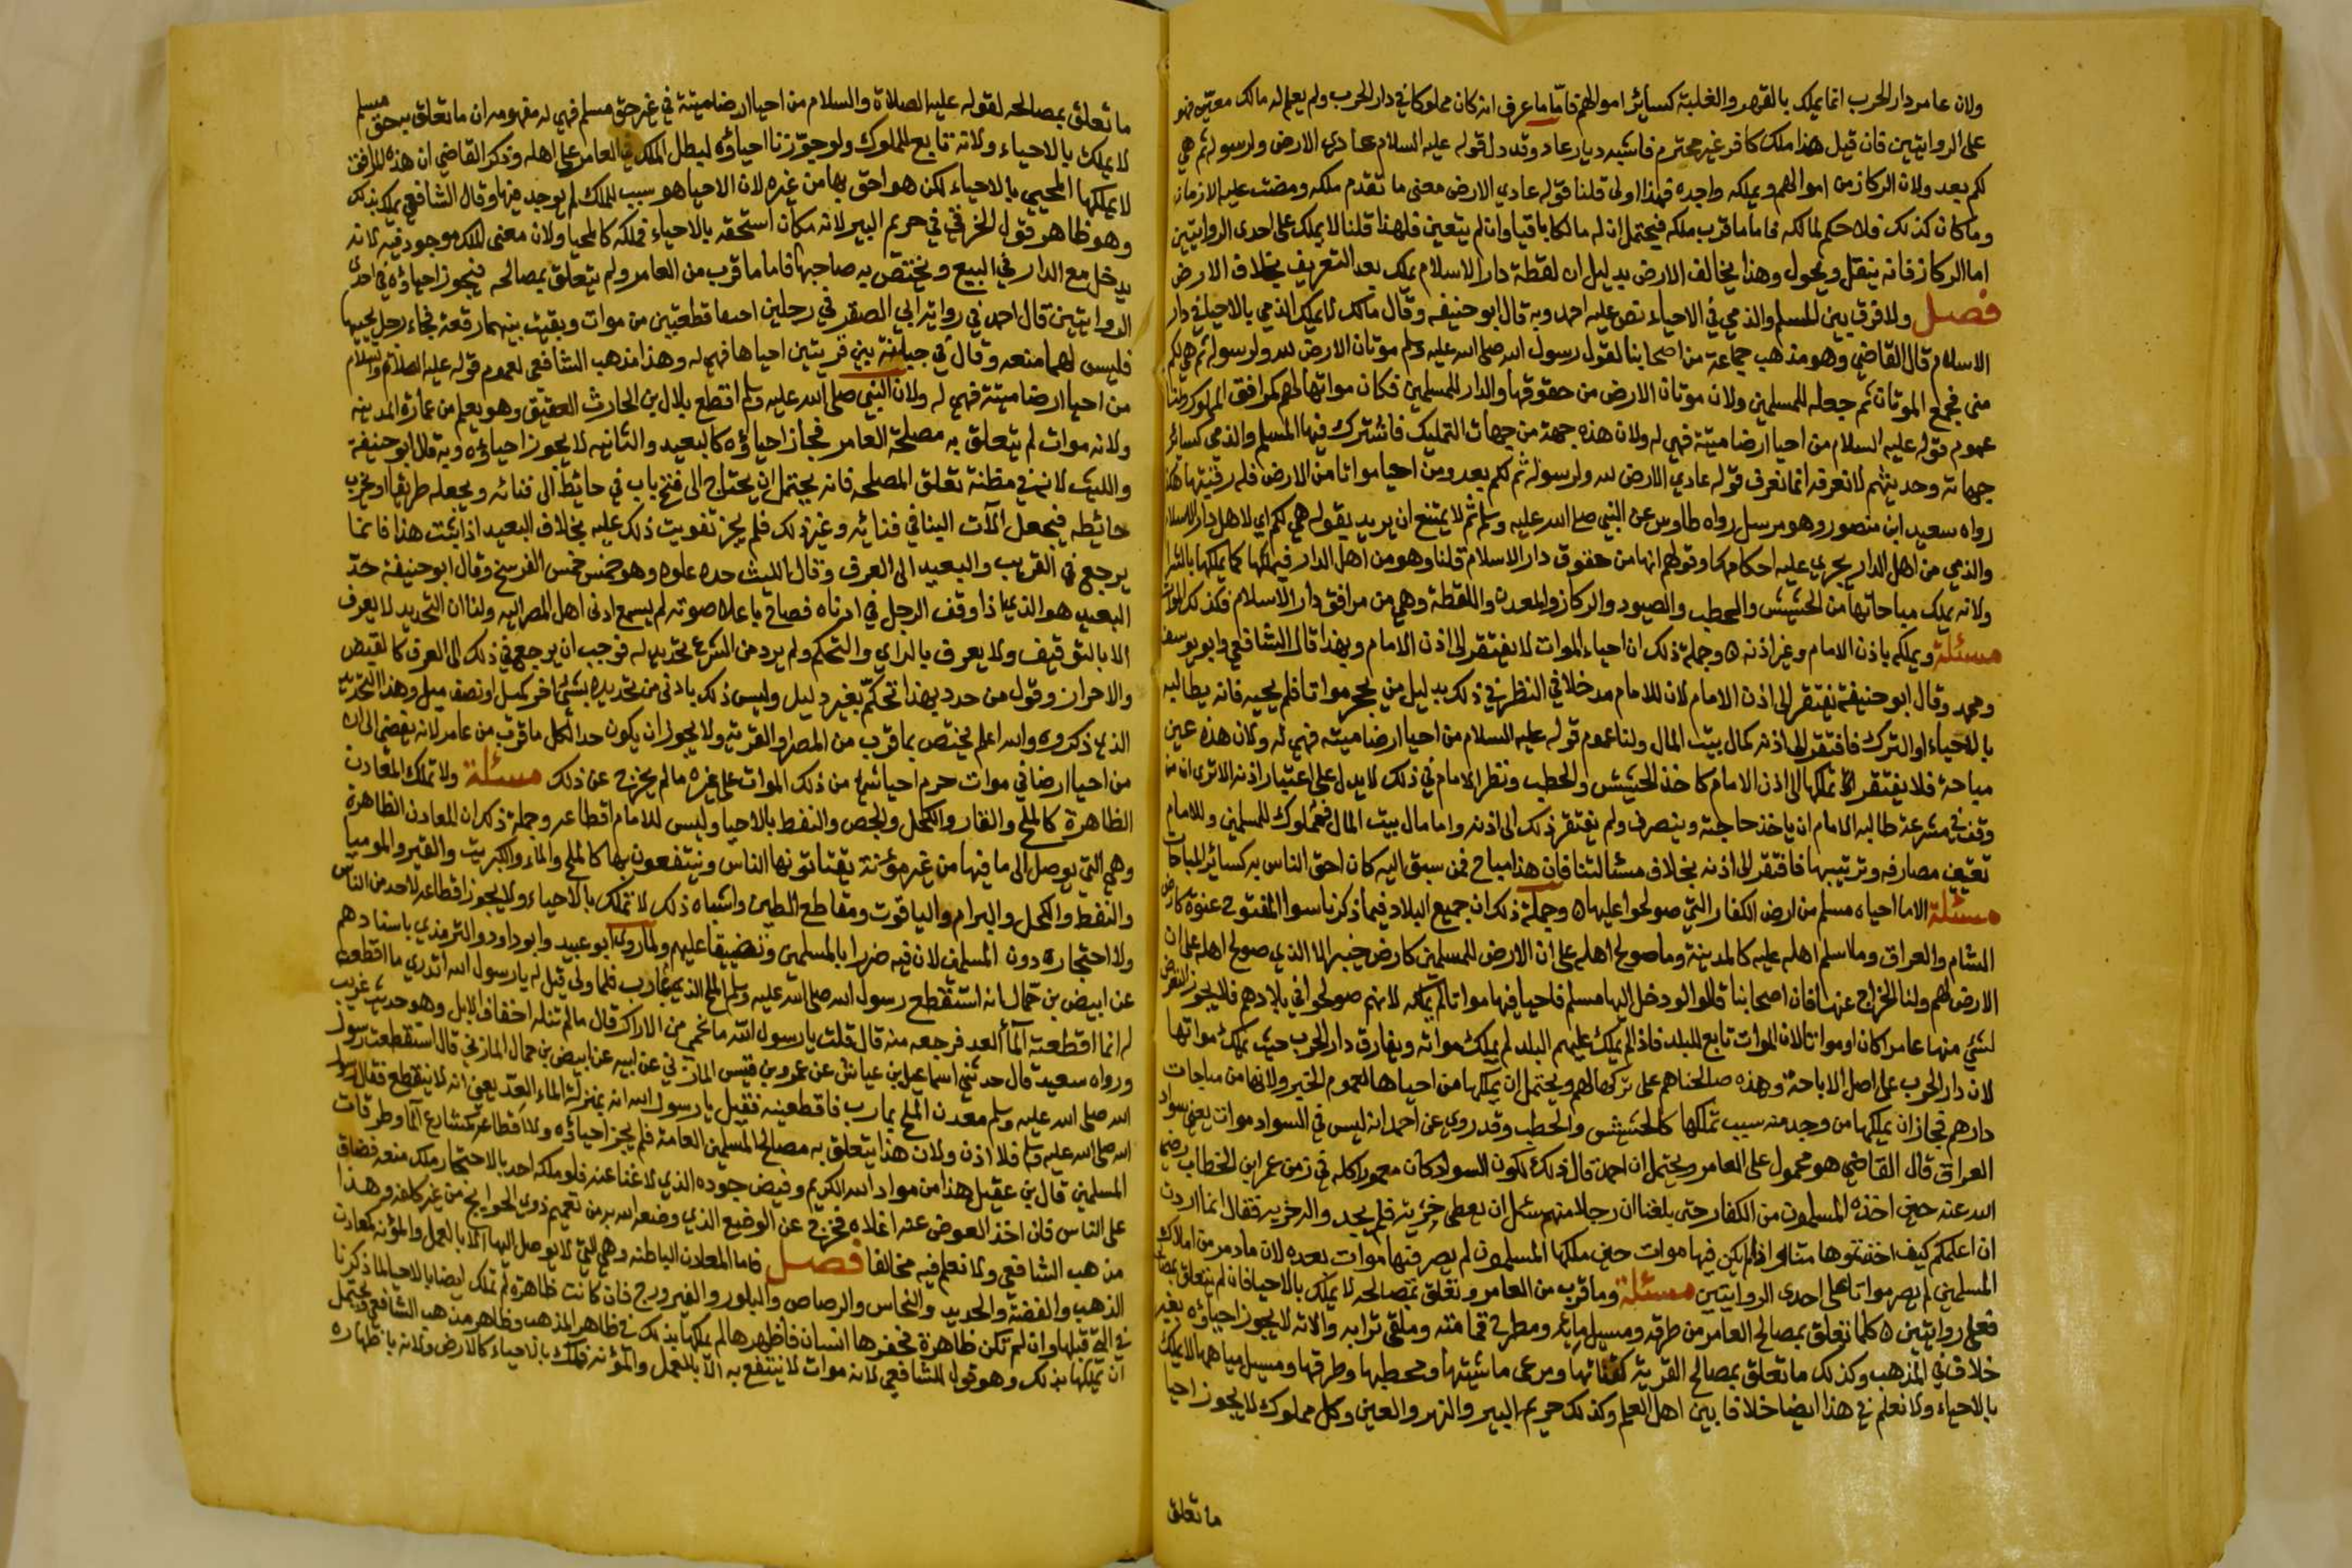 ولان عامر دار الحرب انما يملك بالقهر والغلبة كسائر اموالهم فاما ما عرف انه كان مملوكا في دار الحرب ولم يعلم له مالك معين فهو
على الروايتين فان قيل هذا ملك كافر غير محترم فاشبه ديار عاد وقد دل قوله عليه السلام عادي الارض لله ولرسوله ثم هي
لكم بعد ولان الركاز من اموالهم ويملكه واجده فهذا اولى قلنا قوله عادي الارض معنى ما تقدم ملكه ومضت عليه الازمان
وما كان كذلك فلا حكم لمالكه فاما ما قرب ملكه فيحتمل ان له مالكا باقيا وان لم يتعين فلهذا قلنا لا يملك على احدى الروايتين
اما الركاز فانه ينقل ويحول وهذا يخالف الارض بدليل ان لقطة دار الاسلام يملك بعد التعريف بخلاف الارض
فصل ولا فرق بين المسلم والذمي في الاحياء نص عليه احمد وبه قال ابو حنيفه وقال مالك لا يملك الذمي بالاحياء في دار
الاسلام قال القاضي وهو مذهب جماعة من اصحابنا لقول رسول الله صلى الله عليه وسلم موتان الارض لله ولرسوله ثم هي لكم
مني فجمع الموتان ثم جعله للمسلمين ولان موتان الارض من حقوقها والدار للمسلمين فكان مواتها لهم كمرافق المملوك ولنا
عموم قوله عليه السلام من احيا ارضا ميتة فهي له ولان هذه جهة من جهات التمليك فاشترك فيها المسلم والذمي كسائر
جهاته وحديثهم لا نعرفه انما نعرف قوله عادي الارض لله ولرسوله ثم لكم بعد ومن احيا مواتا من الارض فله رقبتها هكذا
رواه سعيد ابن منصور وهو مرسل رواه طاوس عن النبي صلى الله عليه وسلم ثم لا يمتنع ان يريد بقوله هي لكم اي لاهل دار الاسلام
والذمي من اهل الدار يجري عليه احكامها وقولهم انها من حقوق دار الاسلام قلنا وهو من اهل الدار فيملكها كما يملكها بالشرا
ولانه يملك مباحاتها من الحشيش والحطب والصيود والركاز والمعدن واللقطة وهي من مرافق دار الاسلام فكذلك الموات
مسئلة ويملكه باذن الامام وغير اذنه ه وجملة ذلك ان احياء الموات لا يفتقر الى اذن الامام وبهذا قال الشافعي وابو يوسف
ومحمد وقال ابو حنيفة يفتقر الى اذن الامام لان للامام مدخلا في النظر في ذلك بدليل من يحجر مواتا فلم يحييه فانه يطالبه
بالاحياء او الترك فافتقر الى اذنه كمال بيت المال ولنا عموم قوله عليه السلام من احيا ارضا ميته فهي له ولان هذه عين
مباحة فلا يفتقر تملكها الى اذن الامام كاخذ الحشيش والحطب ونظر الامام في ذلك لا يدل على اعتبار اذنه الا ترى ان من
وقف في مشرعة طالبه الامام ان ياخذ حاجته وينصرف ولم يفتقر ذلك الى اذنه واما مال بيت المال فهو مملوك للمسلمين وللامام
تعيين مصارفه وترتيبها فافتقر الى اذنه بخلاف مسئالتنا فان هذا مباح فمن سبق اليه كان احق الناس به كسائر المباحات
مسئلة الا ما احياه مسلم من ارض الكفار التي صولحوا عليها ه وجملة ذلك ان جميع البلاد فيما ذكرنا سوا المفتوح عنوة كارض
الشام والعراق وما اسلم اهله عليه كالمدينة وما صولح اهله على ان الارض للمسلمين كارض خيبر الا الذي صولح اهله على ان
الارض لهم ولنا الخراج عنها فان اصحابنا قالوا لو دخل اليها مسلم فاحيا فيها مواتا لم يملكه لانهم صولحوا في بلادهم فلا يجوز التعرض
لشئ منها عامرا كان او مواتا لان الموات تابع للبلد فاذا لم يملك عليهم البلد لم يملك مواته ويفارق دار الحرب حيث يملك مواتها
لان دار الحرب على اصل الاباحة وهذه صالحناهم على تركها لهم ويحتمل ان يملكها من احياها لعموم الخبر ولانها من مباحات
دارهم فجاز ان يملكها من وجد منه سبب تملكها كالحشيش والحطب وقد روي عن احمد انه ليس في السواد موات يعني سواد
العراق قال القاضي هو محمول على العامر ويحتمل ان احمد قال ذلك لكون السواد كان معمورا كله في زمن عمر ابن الخطاب رضي
الله عنه حين اخذه المسلمون من الكفار حتى بلغنا ان رجلا منهم سئل ان يعطى خربة فلم يجد والد خربه فقال انما اردت
ان اعلمكم كيف اخذتموها منا او اذا لم يكن فيها موات حين ملكها المسلمون لم يصر فيها موات بعده لان ما دمر من املاك
المسلمين لم يصر مواتا على احدى الروايتين مسئلة وما قرب من العامر وتعلق بمصالحه لا يملك بالاحيا فان لم يتعلق بمصالحه
فعلى روايتين ه كلما تعلق بمصالح العامر من طرقه ومسيل مائه ومطرح قمامته وملقى ترابه والاته لا يجوز احياؤه بغير
خلاف في المذهب وكذلك ما تعلق بمصالح القرية كفنائها ومرعى ماشيتها ومحطبها وطرقها ومسيل مياهها لا يملك
بالاحياء ولا نعلم في هذا ايضا خلافا بين اهل العلم وكذلك حريم البير والنهر والعين وكل مملوك لا يجوز احيا
ما تعلق
ما تعلق بمصالحه لقوله عليه الصلاة والسلام من احيا ارضا ميتة في غير حق مسلم فهي له مفهومه ان ما تعلق به حق مسلم
لا يملك بالاحياء ولانه تابع للمملوك ولو جوزنا احياؤه لبطل الملك في العامر على اهله وذكر القاضي ان هذه المرافق
لا يملكها المحيي بالاحياء لكن هو احق بها من غيره لان الاحيا هو سبب للملك لم يوجد فيها وقال الشافعي يملك بذلك
وهو ظاهر قول الخرقي في حريم البير لانه مكان استحقه بالاحياء فملكه كالمحيا ولان معنى الملك موجود فيه لانه
يدخل مع الدار في البيع ويختص به صاحبها فاما ما قرب من العامر ولم يتعلق بمصالحه فيجوز احياؤه في احدى
الروايتين قال احمد في رواية ابي الصقر في رجلين احييا قطعتين من موات وبقيت بينهما رقعة فجاء رجل يحييها
فليس لهما منعه وقال في جبانة بين قريتين احياها فهي له وهذا مذهب الشافعي لعموم قوله عليه الصلاة والسلام
من احيا ارضا ميتة فهي له ولان النبي صلى الله عليه وسلم اقطع بلال بن الحارث العقيق وهو يعلم من عمارة المدينه
ولانه موات لم يتعلق به مصلحة العامر فجاز احياؤه كالبعيد والثانيه لا يجوز احياؤه وبه قال ابو حنيفة
والليث لانه في مظنة تعلق المصلحه فانه يحتمل ان يحتاج الى فتح باب في حائط الى فنائه ويجعله طريقا او يخرب
حائطه فيجعل الات البنا في فنائه وغير ذلك فلم يجز تفويت ذلك عليه بخلاف البعيد اذا ثبت هذا فانما
يرجع في القريب والبعيد الى العرف وقال الليث حده غلوه وهو خمس خمس الفرسخ وقال ابو حنيفة حد
البعيد هو الذي اذا وقف الرجل في ادناه فصاح باعلا صوته لم يسمع ادنى اهل المصر اليه ولنا ان التحديد لا يعرف
الا بالتوقيف ولا يعرف بالراي والتحكم ولم يرد من الشرع تحديد له فوجب ان يرجع في ذلك الى العرف كالقبض
والاحراز وقول من حدد بهذا تحكم بغير دليل وليس ذلك باولى من تحديده بشئ اخر كميل او نصف ميل وهذا التحديد
الذي ذكروه والله اعلم يختص بما قرب من المصر او القرية ولا يجوز ان يكون حدا لكل ما قرب من عامر لانه يفضي الى ان
من احيا ارضا في موات حرم احيا شئ من ذلك الموات على غيره ما لم يخرج عن ذلك مسئلة ولا تملك المعادن
الظاهرة كالملح والقار والكحل والجص والنفط بالاحيا وليس للامام اقطاعه وجملة ذلك ان المعادن الظاهرة
وهي التي يوصل الى ما فيها من غير مؤنة يقتاتونها الناس وينتفعون بها كالملح والماء والكبريت والقير والموميا
والنفط والكحل والبرام والياقوت ومقاطع الطين واشباه ذلك لا تملك بالاحياء ولا يجوز اقطاعه لاحد من الناس
ولا احتجاره دون المسلمين لان فيه ضررا بالمسلمين وتضييقا عليهم ولما روى ابو عبيد وابو داود والترمذي باسنادهم
عن ابيض بن حمال انه استقطع رسول الله صلى الله عليه وسلم الملح الذي بمارب فلما ولى قيل له يا رسول الله اتدري ما اقطعت
له انما اقطعته الما العد فرجعه منه قال قلت يا رسول الله ما يحمى من الاراك قال ما لم تنله اخفاف الابل وهو حديث غريب
ورواه سعيد قال حدثني اسماعيل بن عياش عن عمرو بن قيس المازني عن ابيه عن ابيض بن حمال المازني قال استقطعت رسول
الله صلى الله عليه وسلم معدن الملح بمارب فاقطعنيه فقيل يا رسول الله انه بمنزلة الماء العد يعني انه لا ينقطع فقال رسول
الله صلى الله عليه وسلم فلا اذن ولان هذا يتعلق به مصالح المسلمين العامة فلم يجز احياؤه ولا اقطاعه كمشارع الما وطرقات
المسلمين قال بن عقيل هذا من مواد الله الكريم وفيض جوده الذي لا غنا عنه فلو ملكه احد بالاحتجار ملك منعه فضاق
على الناس فان اخذ العوض عنه اغلاه فخرج عن الوضع الذي وضعه الله به من تعميم ذوي الحوايج من غير كلفه وهذا
مذهب الشافعي ولا نعلم فيه مخالفا فصل فاما المعادن الباطنه وهي التي لا يوصل اليها الا بالعمل والمؤنه كمعادن
الذهب والفضة والحديد والنحاس والرصاص والبلور والفيروزج فان كانت ظاهرة لم تملك ايضا بالاحيا لما ذكرنا
في التي قبلها وان لم تكن ظاهرة فحفرها انسان فاظهرها لم يملكها بذلك في ظاهر المذهب وظاهر مذهب الشافعي ويحتمل
ان يملكها بذلك وهو قول للشافعي لانه موات لا ينتفع به الا بالعمل والمؤنه فملك بالاحياء كالارض ولانه باظهاره